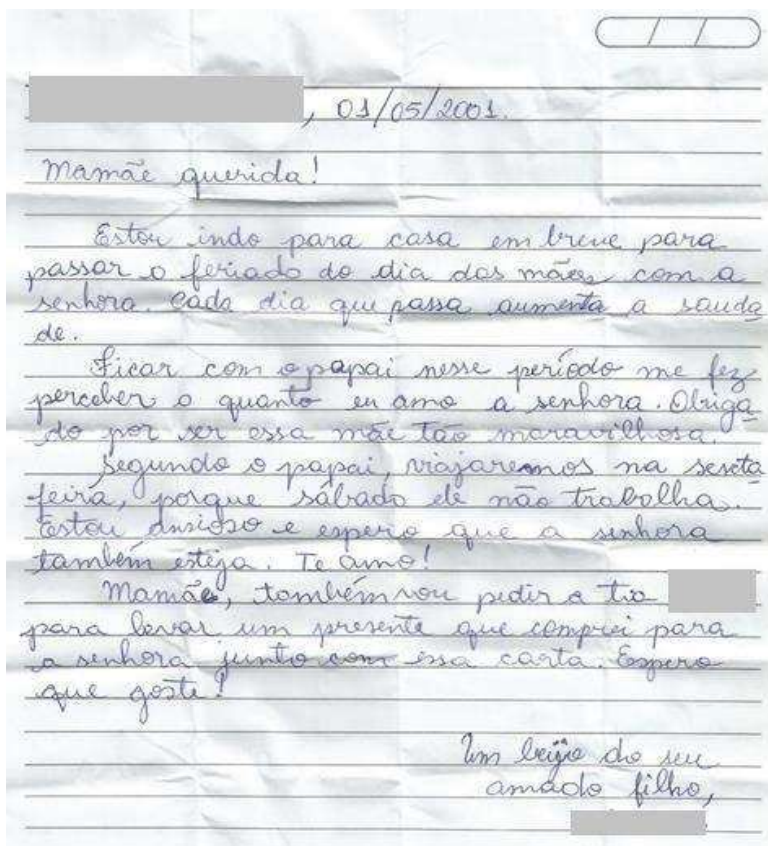 , 01/05/2001.
Mamãe querida!
Estou indo para casa em breve para
passar o feriado do dia das mães com a
senhora. Cada dia que passa aumenta a sauda
de.
Ficar com o papai nesse período me fez
perceber o quanto eu amo a senhora. Obriga
do por ser essa mãe tão maravilhosa.
Segundo o papai, viajaremos na sexta
feira, porque sábado ele não trabalha.
Estou ansioso e espero que a senhora
também esteja. Te amo!
Mamãe, também vou pedir a tia
para levar um presente que comprei para
a senhora junto com essa carta. Espero
que goste!
Um beijo do seu
amado filho,